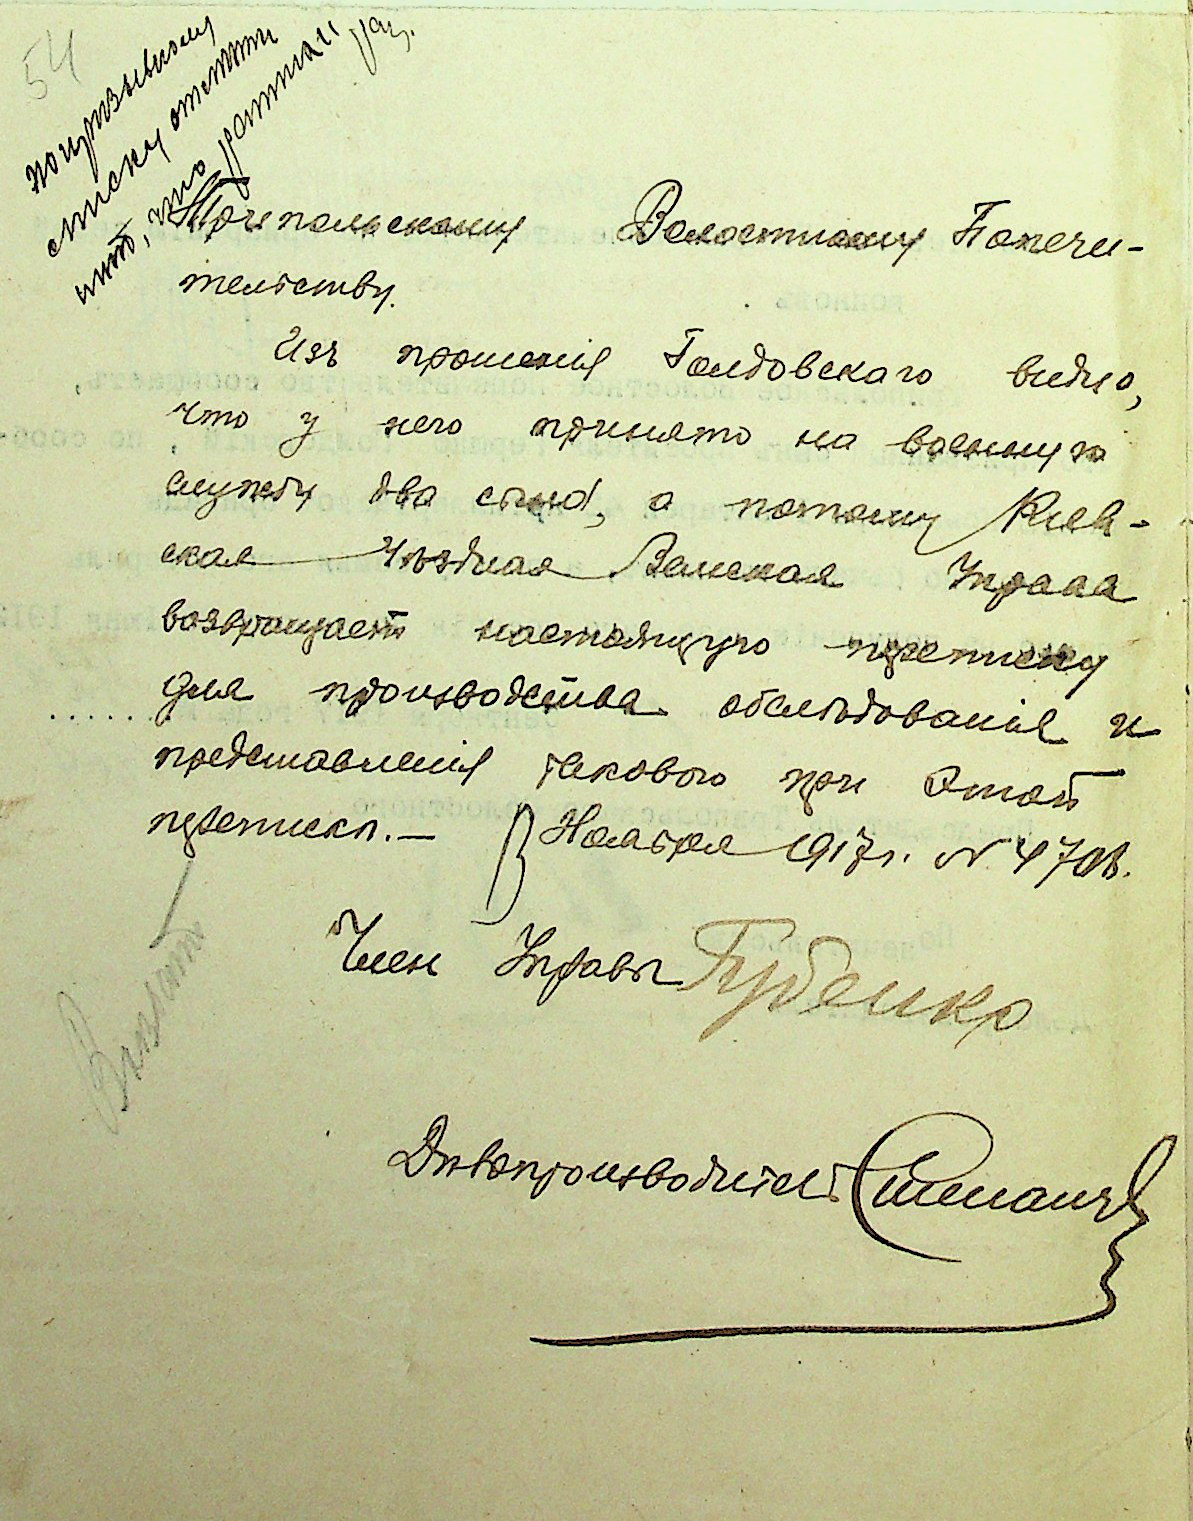 54
по призывному
списку отмети
что
Трипольскому Волостному Попечи-
тельству.
Изъ прошенія Голдовскаго видно,
что у него принято на военную
службу два сына, а потому Кіев-
ская Уѣздная Земская Управа
возвращаетъ настоящую переписку
для производства обслѣдованія и
представленія такового при этой
перепискѣ.—
Ноября 1917 г. N 4708.
Член Управы Губенко
Дѣлопроизводитель